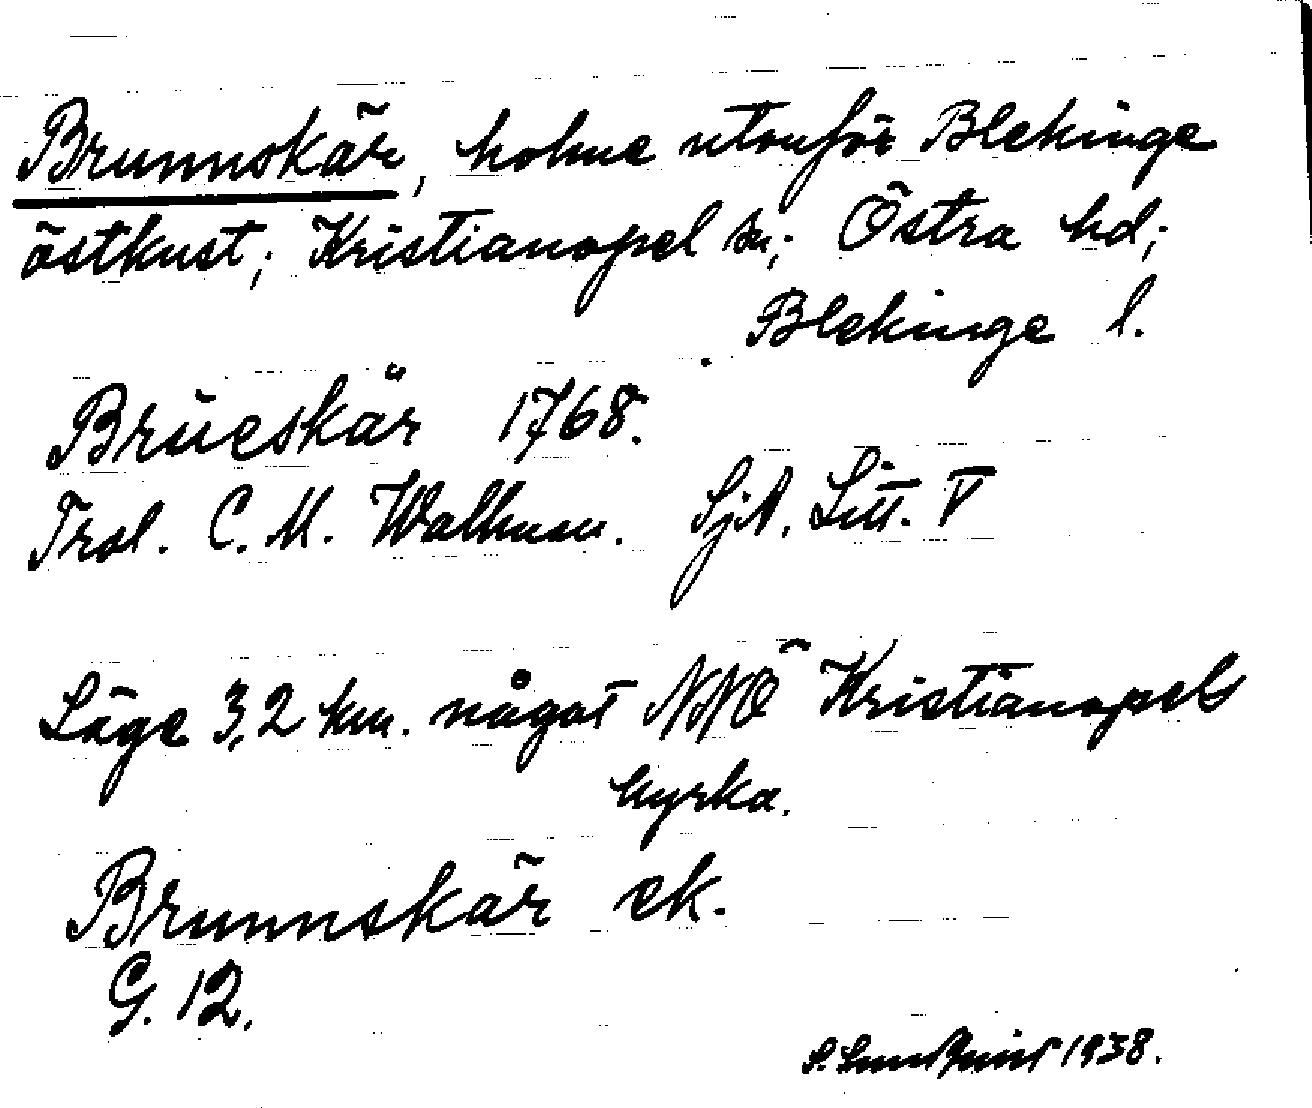 Brunnskär, holme utanför Blekinge
östkust; Kristianopel sn; Östra hd;
Blekinge l.
Brüeskär 1768.
C. M. Wallman. SjA. Litt. V
Läge 3,2 km. något NNÖ Kristianopels
kyrka.
Brunnskär ek.
G. 12.
1938.